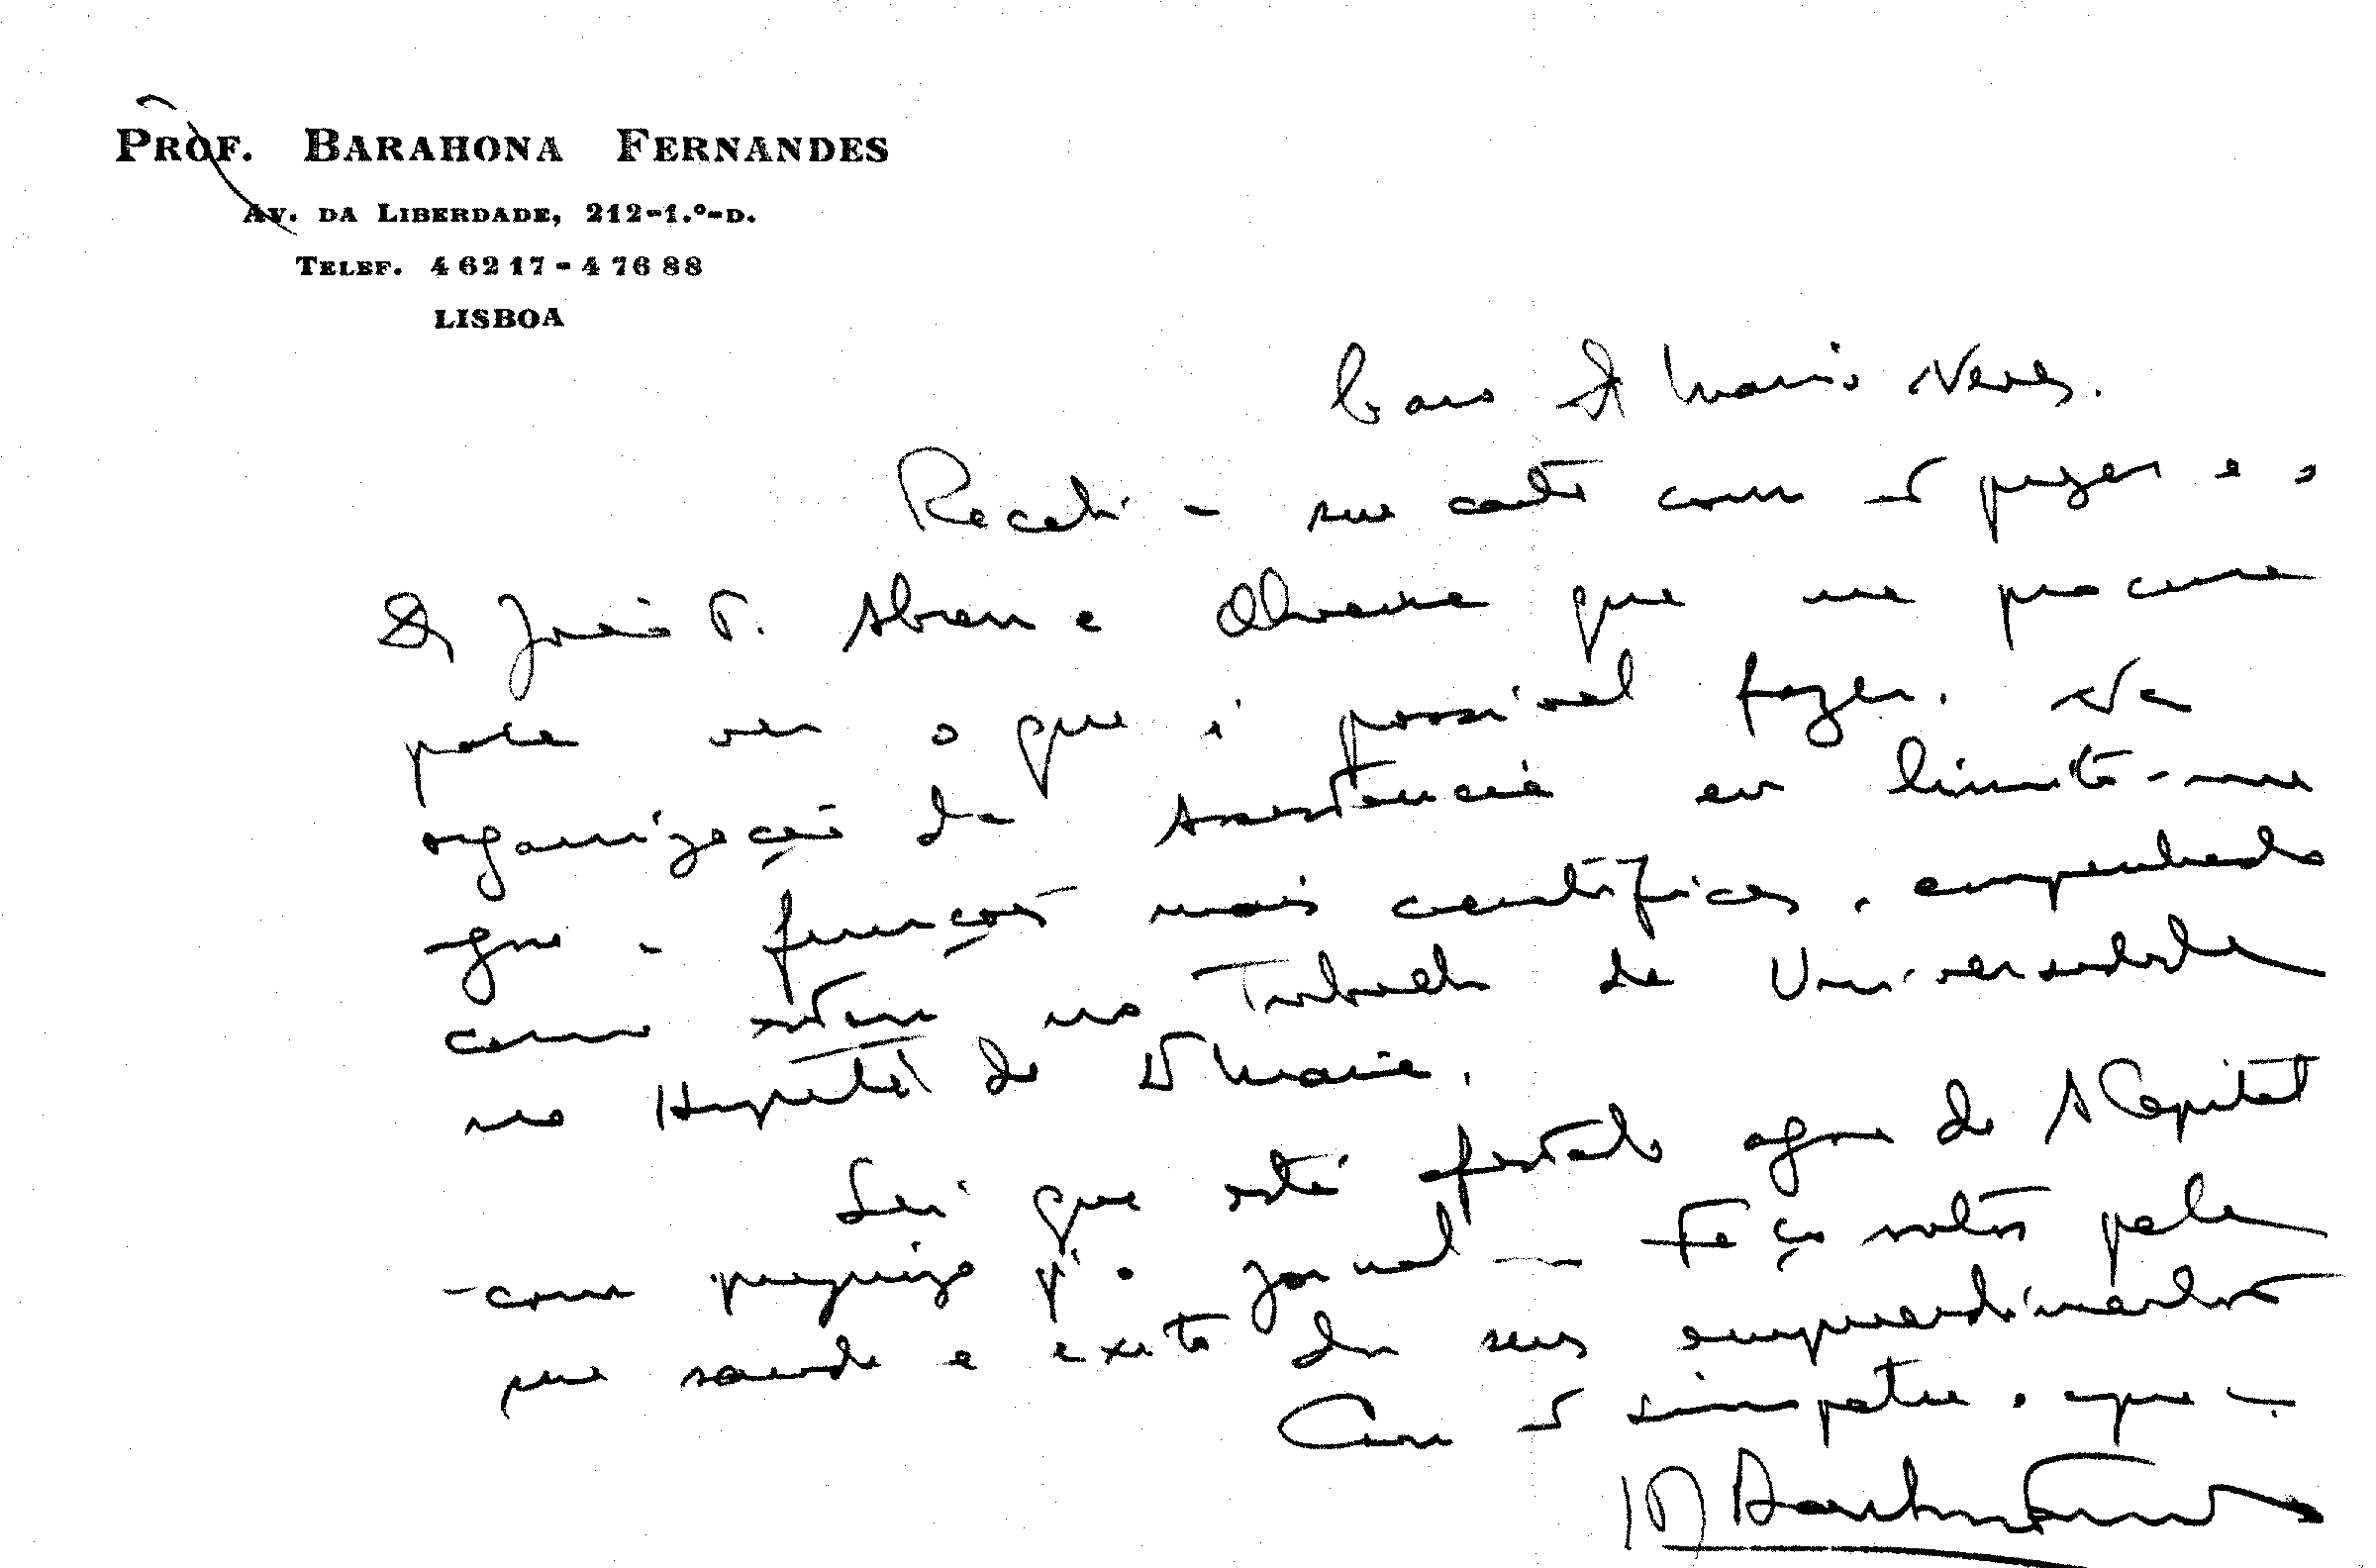 PROF. BARAHONA FERNANDES
AV. DA LIBERDADE, 212-1.º-D.
TELEF. 4 62 17 - 4 76 88
LISBOA
Caro Dr Mario Neves.
Recebi a sua carta com prazer e o
Dr João Abreu e Oliveira que me procura
para ver o que é possivel fazer. Na
organização da assistencia eu limito-me
agora a funções mais cientificas, empenhado
como estou no Trabalho da Universidade
no Hospital de Maria.
Sei que está afastado agora de A Capital
- com prejuizo p.ª o jornal - Faço votos pela
sua saude e exito dos seus empreendimentos
Com simpatia
Barahona Fernandes